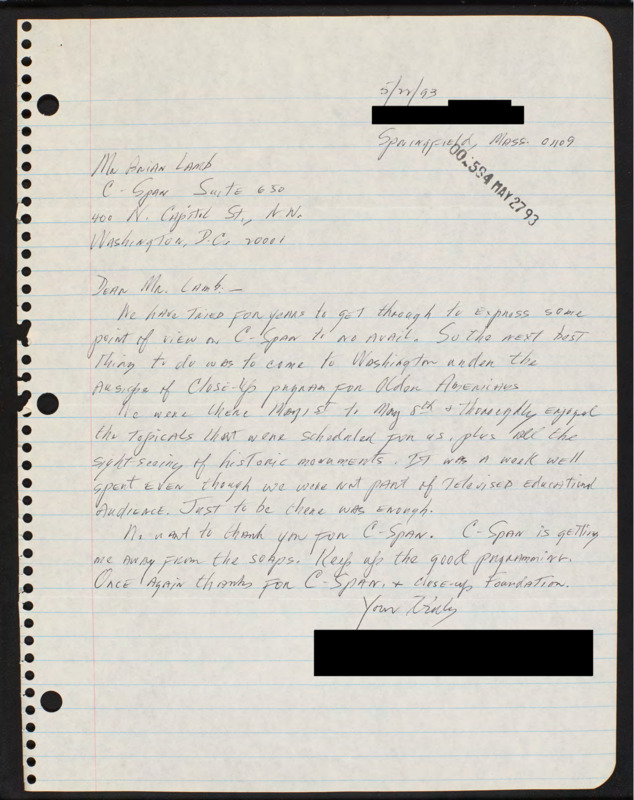 5/22/93
Springfield, Mass. 01109
002594 MAY 27 93
Mr Brian Lamb
C-Span Suite 650
400 N. Capitol St., N.W.
Washington, D.C. 20001
Dear Mr. Lamb. —
We have tried for years to get through to express some
point of view on C-Span to no avail. So the next best
thing to do was to come to Washington under the
Auspices of Close-Up program for Older Americans
We were there May 1st to May 8th & thoroughly enjoyed
the topicals that were scheduled for us, plus all the
sight seeing of historic monuments. It was a week well
spent even though we were not part of Televised Educational
Audience. Just to be there was enough.
We want to thank you for C-Span. C-Span is getting
me away from the soaps. Keep up the good programming.
Once again thanks for C-Span. & Close-up Foundation.
Your